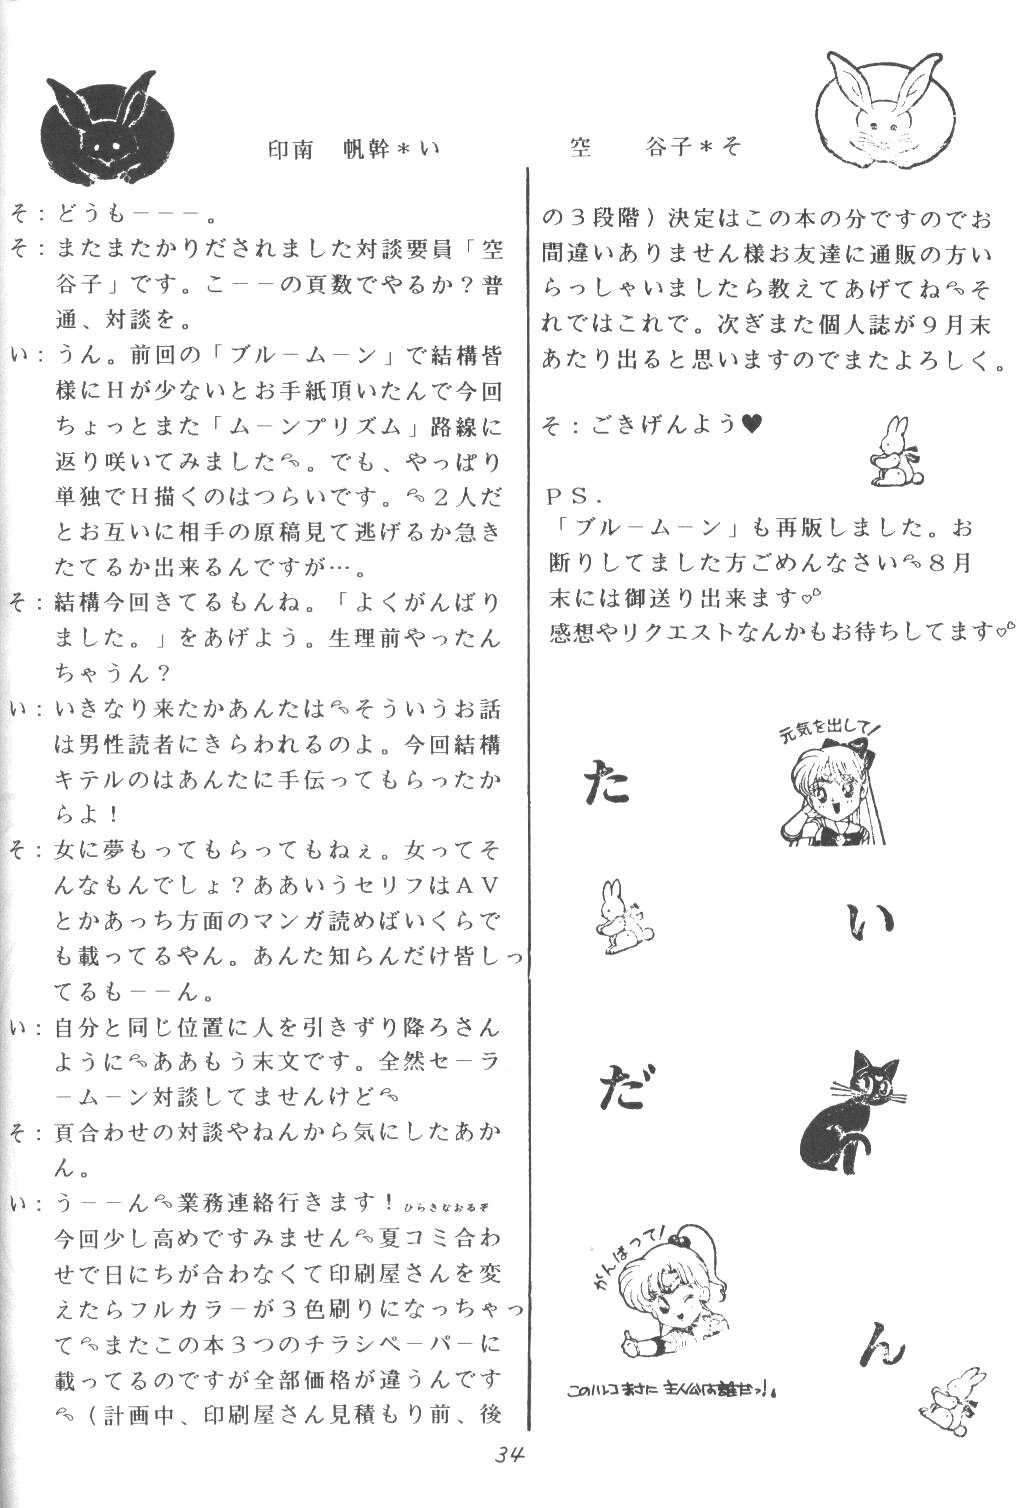 印南　帆幹＊い
空　谷子＊そ
そ：どうも－－－。
そ：またまたかりだされました対談要員「空
谷子」です。こ－－の頁数でやるか？普
通、対談を。
い：うん。前回の「ブルームーン」で結構皆
様にＨが少ないとお手紙頂いたんで今回
ちょっとまた「ムーンプリズム」路線に
返り咲いてみました。でも、やっぱり
単独でＨ描くのはつらいです。２人だ
とお互いに相手の原稿見て逃げるか急き
たてるか出来るんですが…。
そ：結構今回きてるもんね。「よくがんばり
ました。」をあげよう。生理前やったん
ちゃうん？
い：いきなり来たかあんたはそういうお話
は男性読者にきらわれるのよ。今回結構
キテルのはあんたに手伝ってもらったか
らよ！
そ：女に夢もってもらってもねぇ。女ってそ
んなもんでしょ？ああいうセリフはＡＶ
とかあっち方面のマンガ読めばいくらで
も載ってるやん。あんた知らんだけ皆しっ
てるも－－ん。
い：自分と同じ位置に人を引きずり降ろさん
ようにああもう末文です。全然セーラ
ームーン対談してませんけど
そ：頁合わせの対談やねんから気にしたあか
ん。
い：う－－ん業務連絡行きます！ひらきなおるぞ
今回少し高めですみません夏コミ合わ
せで日にちが合わなくて印刷屋さんを変
えたらフルカラーが３色刷りになっちゃっ
てまたこの本３つのチラシペーパーに
載ってるのですが全部価格が違うんです
（計画中、印刷屋さん見積もり前、後
の３段階）決定はこの本の分ですのでお
間違いありません様お友達に通販の方い
らっしゃいましたら教えてあげてねそ
れではこれで。次ぎまた個人誌が９月末
あたり出ると思いますのでまたよろしく。
そ：ごきげんよう♥
ＰＳ．
「ブルームーン」も再版しました。お
断りしてました方ごめんなさい８月
末には御送り出来ます♡
感想やリクエストなんかもお待ちしてます♡
元気を出して！
た
い
だ
がんばって！
ん
このハンコまさに主人公は誰だっ！。
34